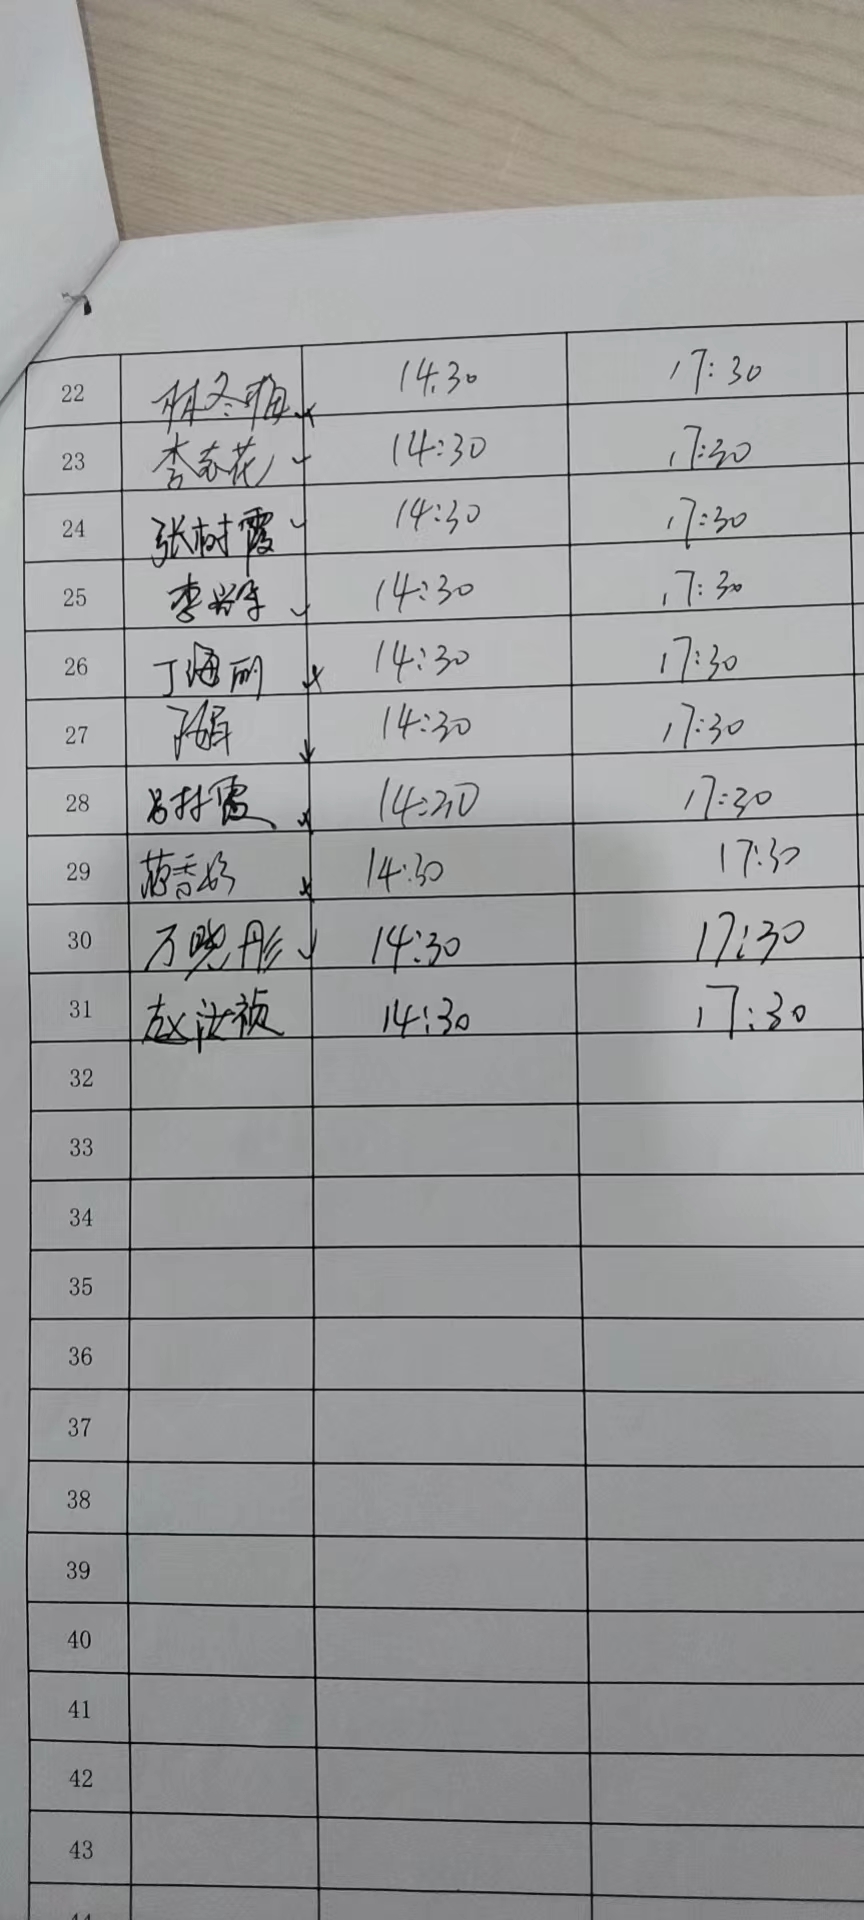 22 林冬梅 14:30 17:30
23 李春花 14:30 17:30
24 张树霞 14:30 17:30
25 李 14:30 17:30
26 丁海丽 14:30 17:30
27 14:30 17:30
28 吕林霞 14:30 17:30
29 14:30 17:30
30 万晓彤 14:30 17:30
31 赵汝祯 14:30 17:30
32
33
34
35
36
37
38
39
40
41
42
43
44